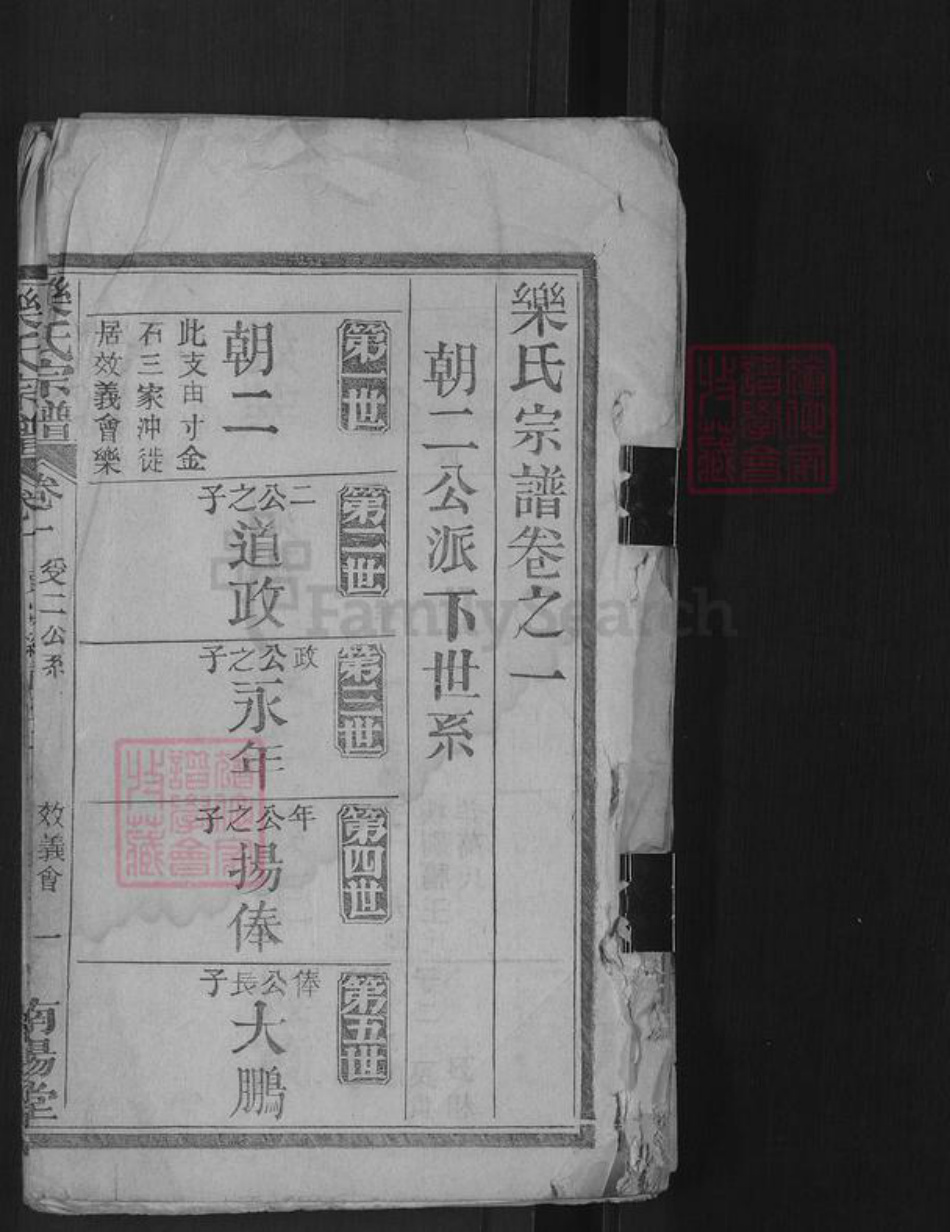 樂氏宗譜卷之一
朝二公派下世系
第一世
朝二
此支由寸金
石三家冲徙
居效義會樂
第二世
二公之子
道政
第三世
政公之子
永年
第四世
年公之子
揚俸
第五世
俸公長子
大鵬
樂氏宗譜
卷一
效義會
一
南陽堂
FamilySearch